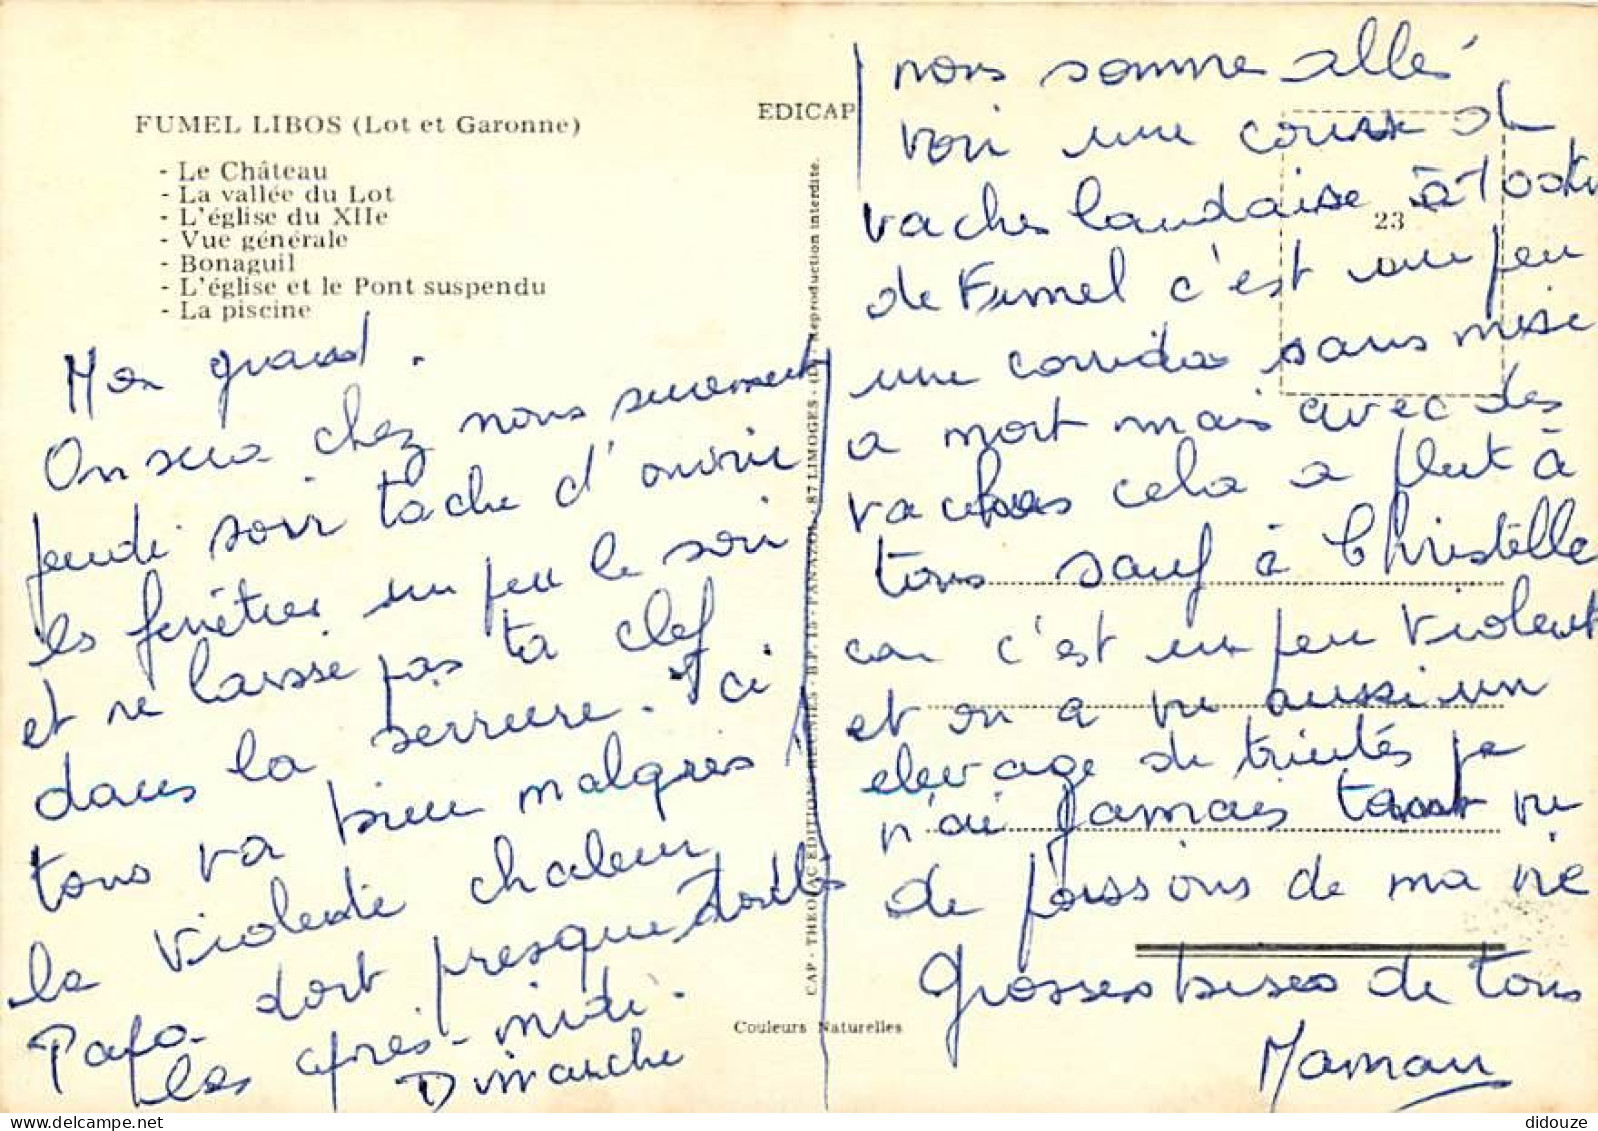 FUMEL LIBOS (Lot et Garonne)
- Le Château
- La vallée du Lot
- L'église du XIIe
- Vue générale
- Bonaguil
- L'église et le Pont suspendu
- La piscine
EDICAP
23
Mon grand.
On sera chez nous surement
jeudi soir tache d'ouvrir
les fenêtres un peu le soir
et ne laisse pas ta clef
dans la serrure. Ici
tous va bien malgres
la violente chaleur
Papa dort presque toutes
les après-midi.
Dimanche
nous somme allés
voir une course de
vaches landaise à 10 km
de Fumel c'est un peu
une corrida sans mise
a mort mais avec des
vaches cela a plut à
tous sauf à Christelle
car c'est un peu violent
et on a vu aussi un
elevage de truites je
n'ai jamais tant vu
de poissons de ma vie
Grosses bises de tous
Maman
CAP - THEOJAC EDITIONS REUNIES - B.P. 15 - PANAZOL - 87 LIMOGES - (D.) - Reproduction interdite.
Couleurs Naturelles
delcampe.net
didouze